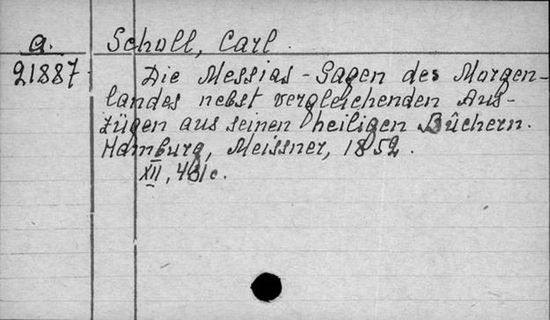 a.
Scholl, Carl.
21887.
Die Messias-Sagen des Morgen-
landes nebst vergleichenden Aus-
zügen aus seinen heiligen Büchern.
Hamburg, Meissner, 1852.
XII, 431c.